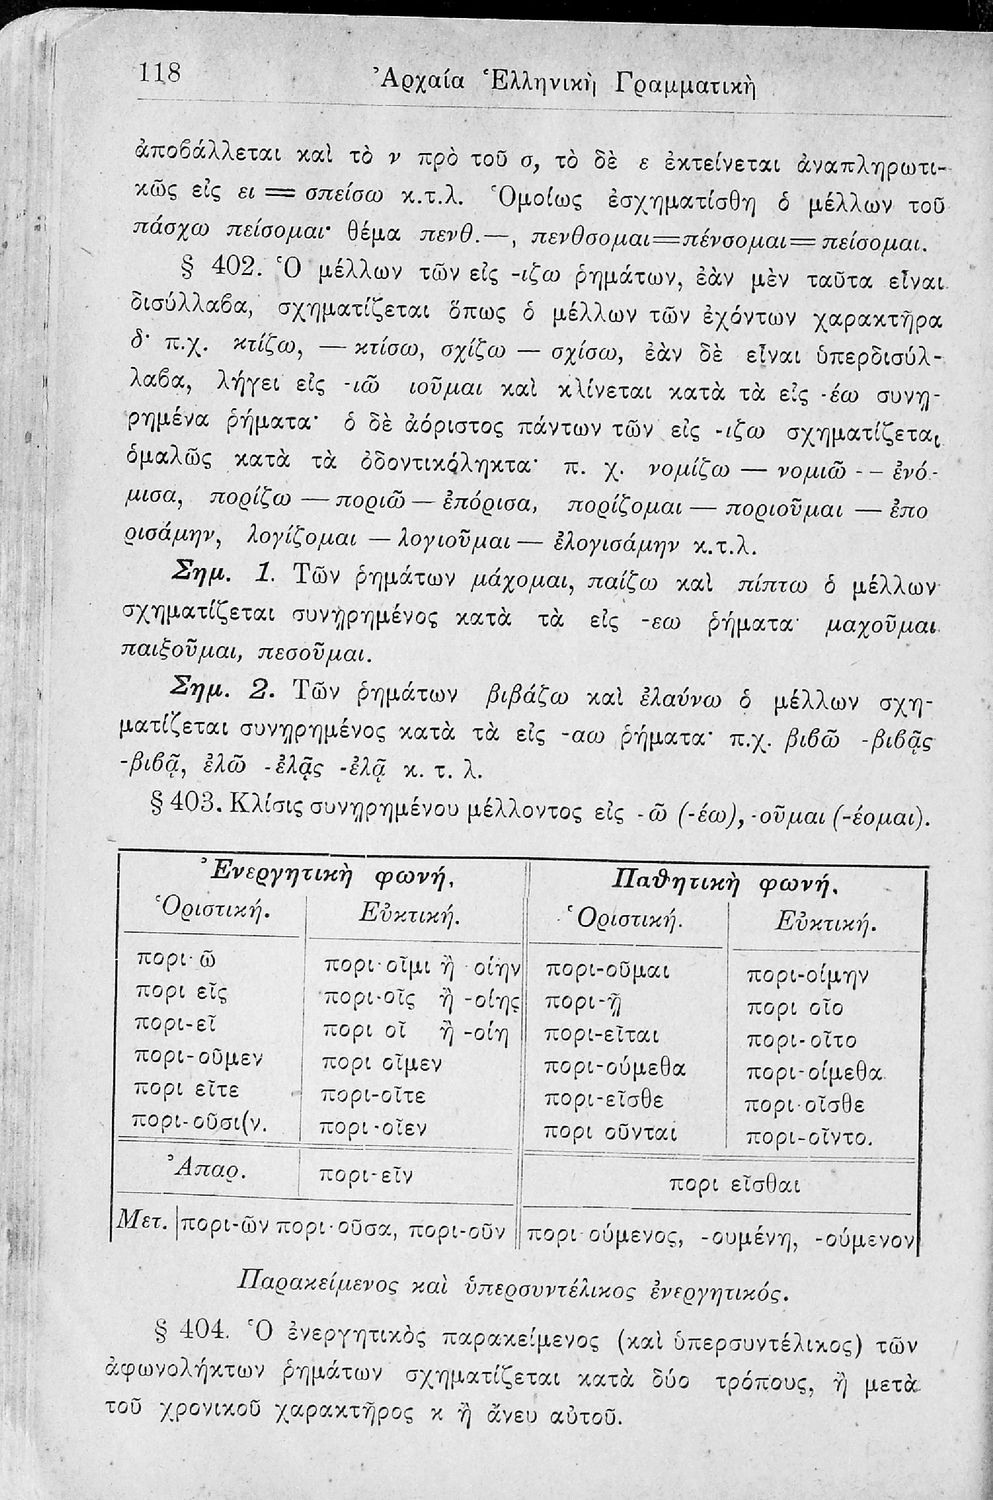 118 Ἀρχαία Ἑλληνικὴ Γραμματικὴ
ἀποβάλλεται καὶ τὸ ν πρὸ τοῦ σ, τὸ δὲ ε ἐκτείνεται ἀναπληρωτι-
κῶς εἰς ει = σπείσω κ.τ.λ. Ὁμοίως ἐσχηματίσθη ὁ μέλλων τοῦ
πάσχω πείσομαι· θέμα πενθ.—, πενθσομαι=πένσομαι= πείσομαι.
§ 402. Ὁ μέλλων τῶν εἰς -ιζω ῥημάτων, ἐὰν μὲν ταῦτα εἶναι
δισύλλαβα, σχηματίζεται ὅπως ὁ μέλλων τῶν ἐχόντων χαρακτῆρα
δ· π.χ. κτίζω, — κτίσω, σχίζω — σχίσω, ἐὰν δὲ εἶναι ὑπερδισύλ-
λαβα, λήγει εἰς -ιῶ ιοῦμαι καὶ κλίνεται κατὰ τὰ εἰς -έω συνῃ-
ρημένα ῥήματα· ὁ δὲ ἀόριστος πάντων τῶν εἰς -ιζω σχηματίζεται
ὁμαλῶς κατὰ τὰ ὀδοντικόληκτα· π. χ. νομίζω — νομιῶ -- ἐνό-
μισα, πορίζω — ποριῶ — ἐπόρισα, πορίζομαι — ποριοῦμαι — ἐπο
ρισάμην, λογίζομαι — λογιοῦμαι — ἐλογισάμην κ.τ.λ.
Σημ. 1. Τῶν ῥημάτων μάχομαι, παίζω καὶ πίπτω ὁ μέλλων
σχηματίζεται συνῃρημένος κατὰ τὰ εἰς -εω ῥήματα· μαχοῦμαι
παιξοῦμαι, πεσοῦμαι.
Σημ. 2. Τῶν ῥημάτων βιβάζω καὶ ἐλαύνω ὁ μέλλων σχη-
ματίζεται συνῃρημένος κατὰ τὰ εἰς -αω ῥήματα· π.χ. βιβῶ -βιβᾷς
-βιβᾷ, ἐλῶ -ἐλᾷς -ἐλᾷ κ. τ. λ.
§ 403. Κλίσις συνῃρημένου μέλλοντος εἰς -ῶ (-έω), -οῦμαι (-έομαι).
Ἐνεργητικὴ φωνή. Παθητικὴ φωνή.
Ὁριστική. Εὐκτική. Ὁριστική. Εὐκτική.
πορι-ῶ πορι-οῖμι ἢ οίην πορι-οῦμαι πορι-οίμην
πορι εῖς πορι-οῖς ἢ -οίης πορι-ῇ πορι οῖο
πορι-εῖ πορι οῖ ἢ -οίη πορι-εῖται πορι-οῖτο
πορι-οῦμεν πορι οῖμεν πορι-ούμεθα πορι-οίμεθα
πορι εῖτε πορι-οῖτε πορι-εῖσθε πορι-οῖσθε
πορι-οῦσι(ν. πορι-οῖεν πορι οῦνται πορι-οῖντο.
Ἀπαρ. πορι-εῖν πορι εῖσθαι
Μετ. πορι-ῶν πορι-οῦσα, πορι-οῦν πορι ούμενος, -ουμένη, -ούμενον
Παρακείμενος καὶ ὑπερσυντέλικος ἐνεργητικός.
§ 404. Ὁ ἐνεργητικὸς παρακείμενος (καὶ ὑπερσυντέλικος) τῶν
ἀφωνολήκτων ῥημάτων σχηματίζεται κατὰ δύο τρόπους, ἢ μετὰ
τοῦ χρονικοῦ χαρακτῆρος κ ἢ ἄνευ αὐτοῦ.